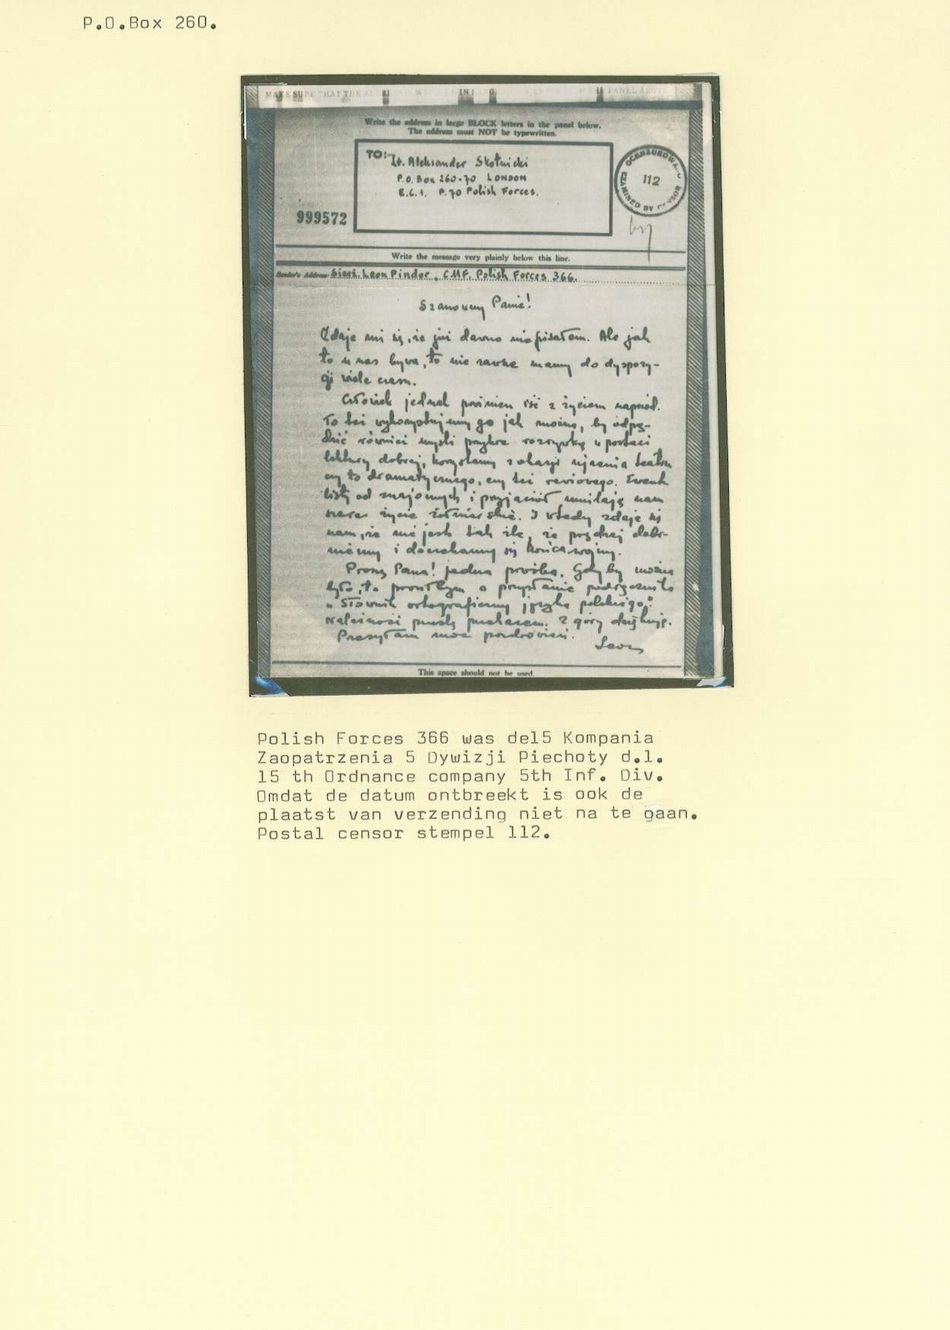 P.O.Box 260.
Write the address in large BLOCK letters in the panel below.
The address must NOT be typewritten.
TO:- Lt. Aleksander Skotnicki
P.O. Box 260-70 LONDON
E.C.1. P.70 Polish Forces.
112
EXAMINED BY CENSOR
999572
Write the message very plainly below this line.
Sender's Address Leon Pindor, CMF. Polish Forces 366.
Szanowny Panie!
Zdaje mi się, że już dawno nie pisałem. Ale jak
to u nas bywa, to nie zawsze mamy do dyspozy-
cji wiele czasu.
Człowiek jednak powinien iść z życiem naprzód.
To też wykorzystujemy go jak można, by odpę-
dzić również myśli przykre rozrywką w postaci
lektury dobrej, korzystamy z okazji ujrzenia teatru
czy to dramatycznego, czy też rewiowego.
listy od znajomych i przyjaciół umilają nam
szare życie żołnierskie. I wtedy zdaje się
nam, że nie jest tak źle, że prędzej dobr-
niemy i doczekamy się końca wojny.
Proszę Pana! Jedna prośba. Gdyby można
było, to prosiłbym o przysłanie podręcznika
"Słownik ortograficzny języka polskiego."
Należność prześlę Z góry dziękuję.
Przesyłam moc pozdrowień.
Leon
This space should not be used.
Polish Forces 366 was de15 Kompania
Zaopatrzenia 5 Dywizji Piechoty d.l.
15 th Ordnance company 5th Inf. Div.
Omdat de datum ontbreekt is ook de
plaatst van verzending niet na te gaan.
Postal censor stempel 112.